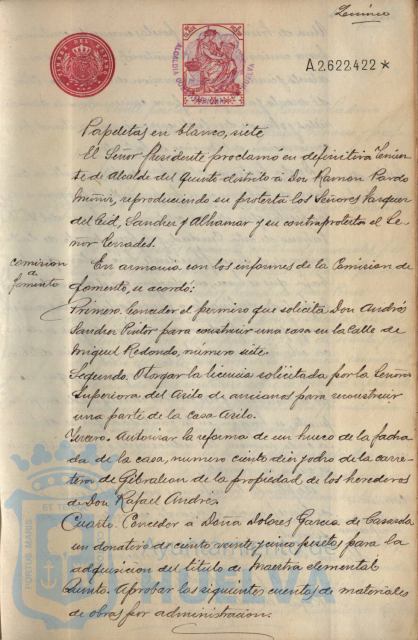 A.2.622.422 *
Papeletas en blanco, siete
El Señor Presidente proclamó en definitiva Tenien-
te de Alcalde del quinto distrito á Don Ramon Pardo
Muñiz, reproduciendo su protesta los Señores Vazquez
del Cid, Sanchez y Alhamar y su contraprotesta el Se-
ñor Terrades.
Comision
de
fomento
En armonia con los informes de la Comision de
fomento, se acordó:
Primero. Conceder el permiso que solicita Don Andrés
Sanchez Pintor para construir una casa en la Calle de
Miguel Redondo, número siete.
Segundo. Otorgar la licencia solicitada por la Señora
Superiora del Asilo de ancianos para reconstruir
una parte de la casa-Asilo.
Tercero. Autorizar la reforma de un hueco de la facha
da de la casa, número ciento diez y ocho de la carre-
tera de Gibraleon de la propiedad de los herederos
de Don Rafael Andrés.
Cuarto. Conceder á Doña Dolores Garcia de
un donativo de ciento veinte y cinco pesetas para la
adquisicion del titulo de Maestra elemental
Quinto. Aprobar las siguientes cuentas de materiales
de obras por administracion:
HUELVA